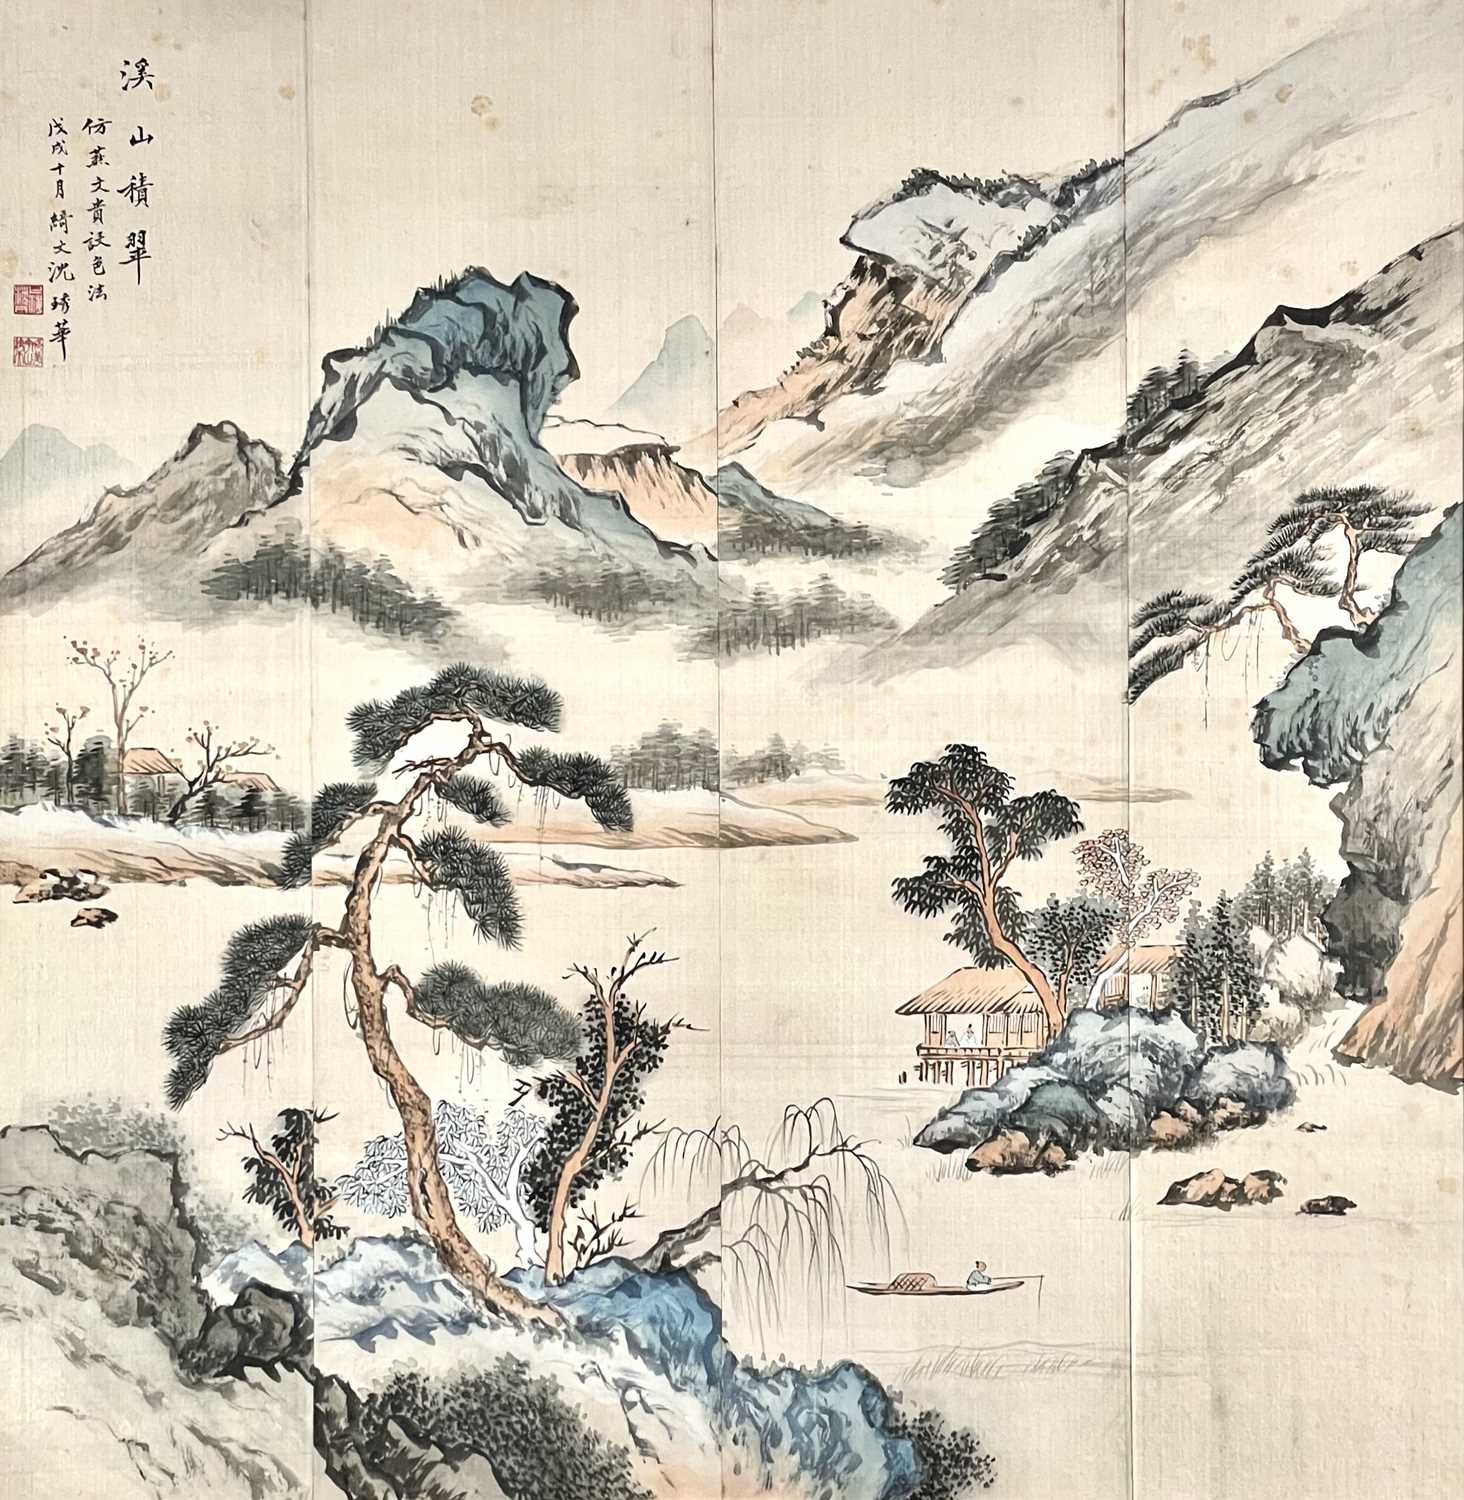 溪山積翠
仿燕文貴設色法
戊戌十月綺文沈琦華